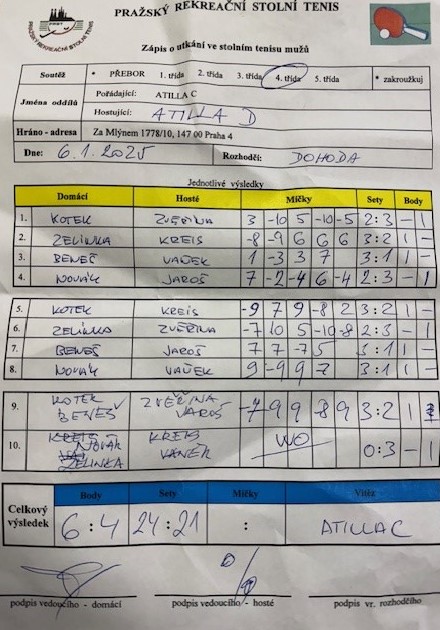 PRAŽSKÝ REKREAČNÍ STOLNÍ TENIS
PRAŽSKÝ REKREAČNÍ STOLNÍ TENIS
Zápis o utkání ve stolním tenisu mužů
Soutěž * PŘEBOR 1. třída 2. třída 3. třída 4. třída 5. třída * zakroužkuj
Jména oddílů Pořádající: ATILLA C
Hostující: ATILLA D
Hráno - adresa Za Mlýnem 1778/10, 147 00 Praha 4
Dne: 6.1.2025 Rozhodčí: DOHODA
Jednotlivé výsledky
Domácí Hosté Míčky Sety Body
1. KOTEK ZVĚŘINA 3 -10 5 -10 -5 2:3 - 1
2. ZELINKA KREIS -8 -9 6 6 6 3:2 1 -
3. BENEŠ VANĚK 1 -3 3 7 3:1 1 -
4. NOVÁK JAROŠ 7 -2 -4 6 -4 2:3 - 1
5. KOTEK KREIS -9 7 9 -8 2 3:2 1 -
6. ZELINKA ZVĚŘINA -7 10 5 -10 -8 2:3 - 1
7. BENEŠ JAROŠ 7 7 -7 5 3:1 1 -
8. NOVÁK VANĚK 9 -9 9 7 3:1 1 -
9. KOTEK ZVĚŘINA -7 9 9 -8 9 3:2 1
BENEŠ JAROŠ
10. NOVÁK KREIS WO 0:3 - 1
ZELINKA VANĚK
Celkový výsledek Body Sety Míčky Vítěz
6:4 24:21 : ATILLA C
podpis vedoucího - domácí podpis vedoucího - hosté podpis vr. rozhodčího